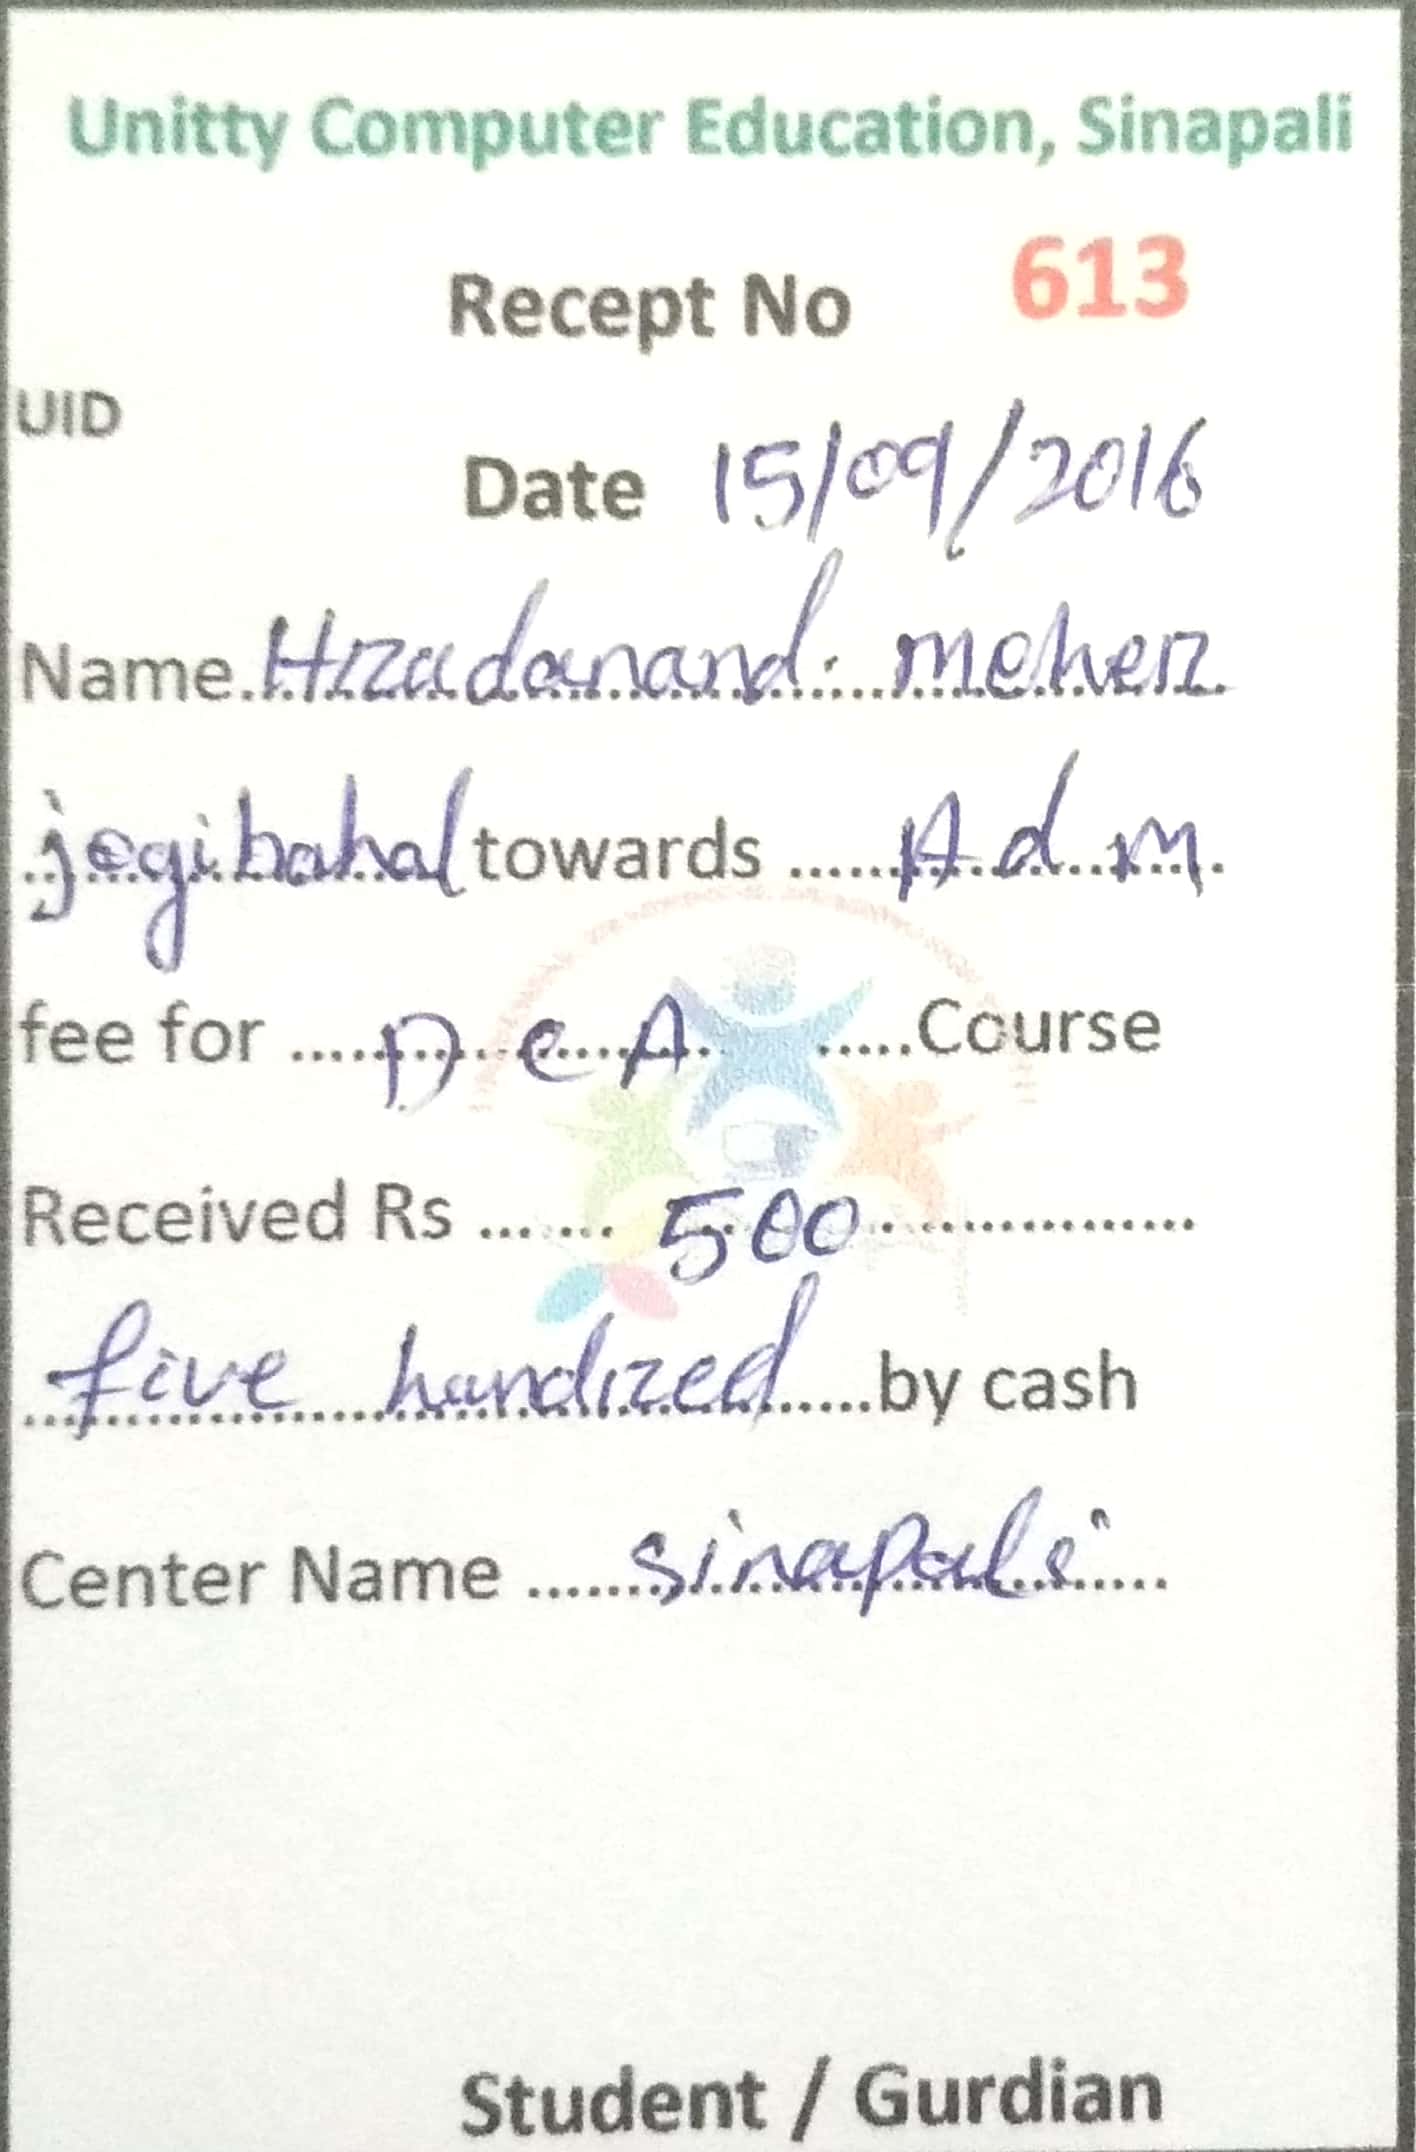 Unitty Computer Education, Sinapali
Recept No 613
UID
Date 15/09/2016
Name. Hradanand meher
jogibahal towards ...... Adm
fee for ..... DCA ......Course
Received Rs ....... 500 ................
five hundred ......by cash
Center Name ....... sinapali .....
Student / Gurdian